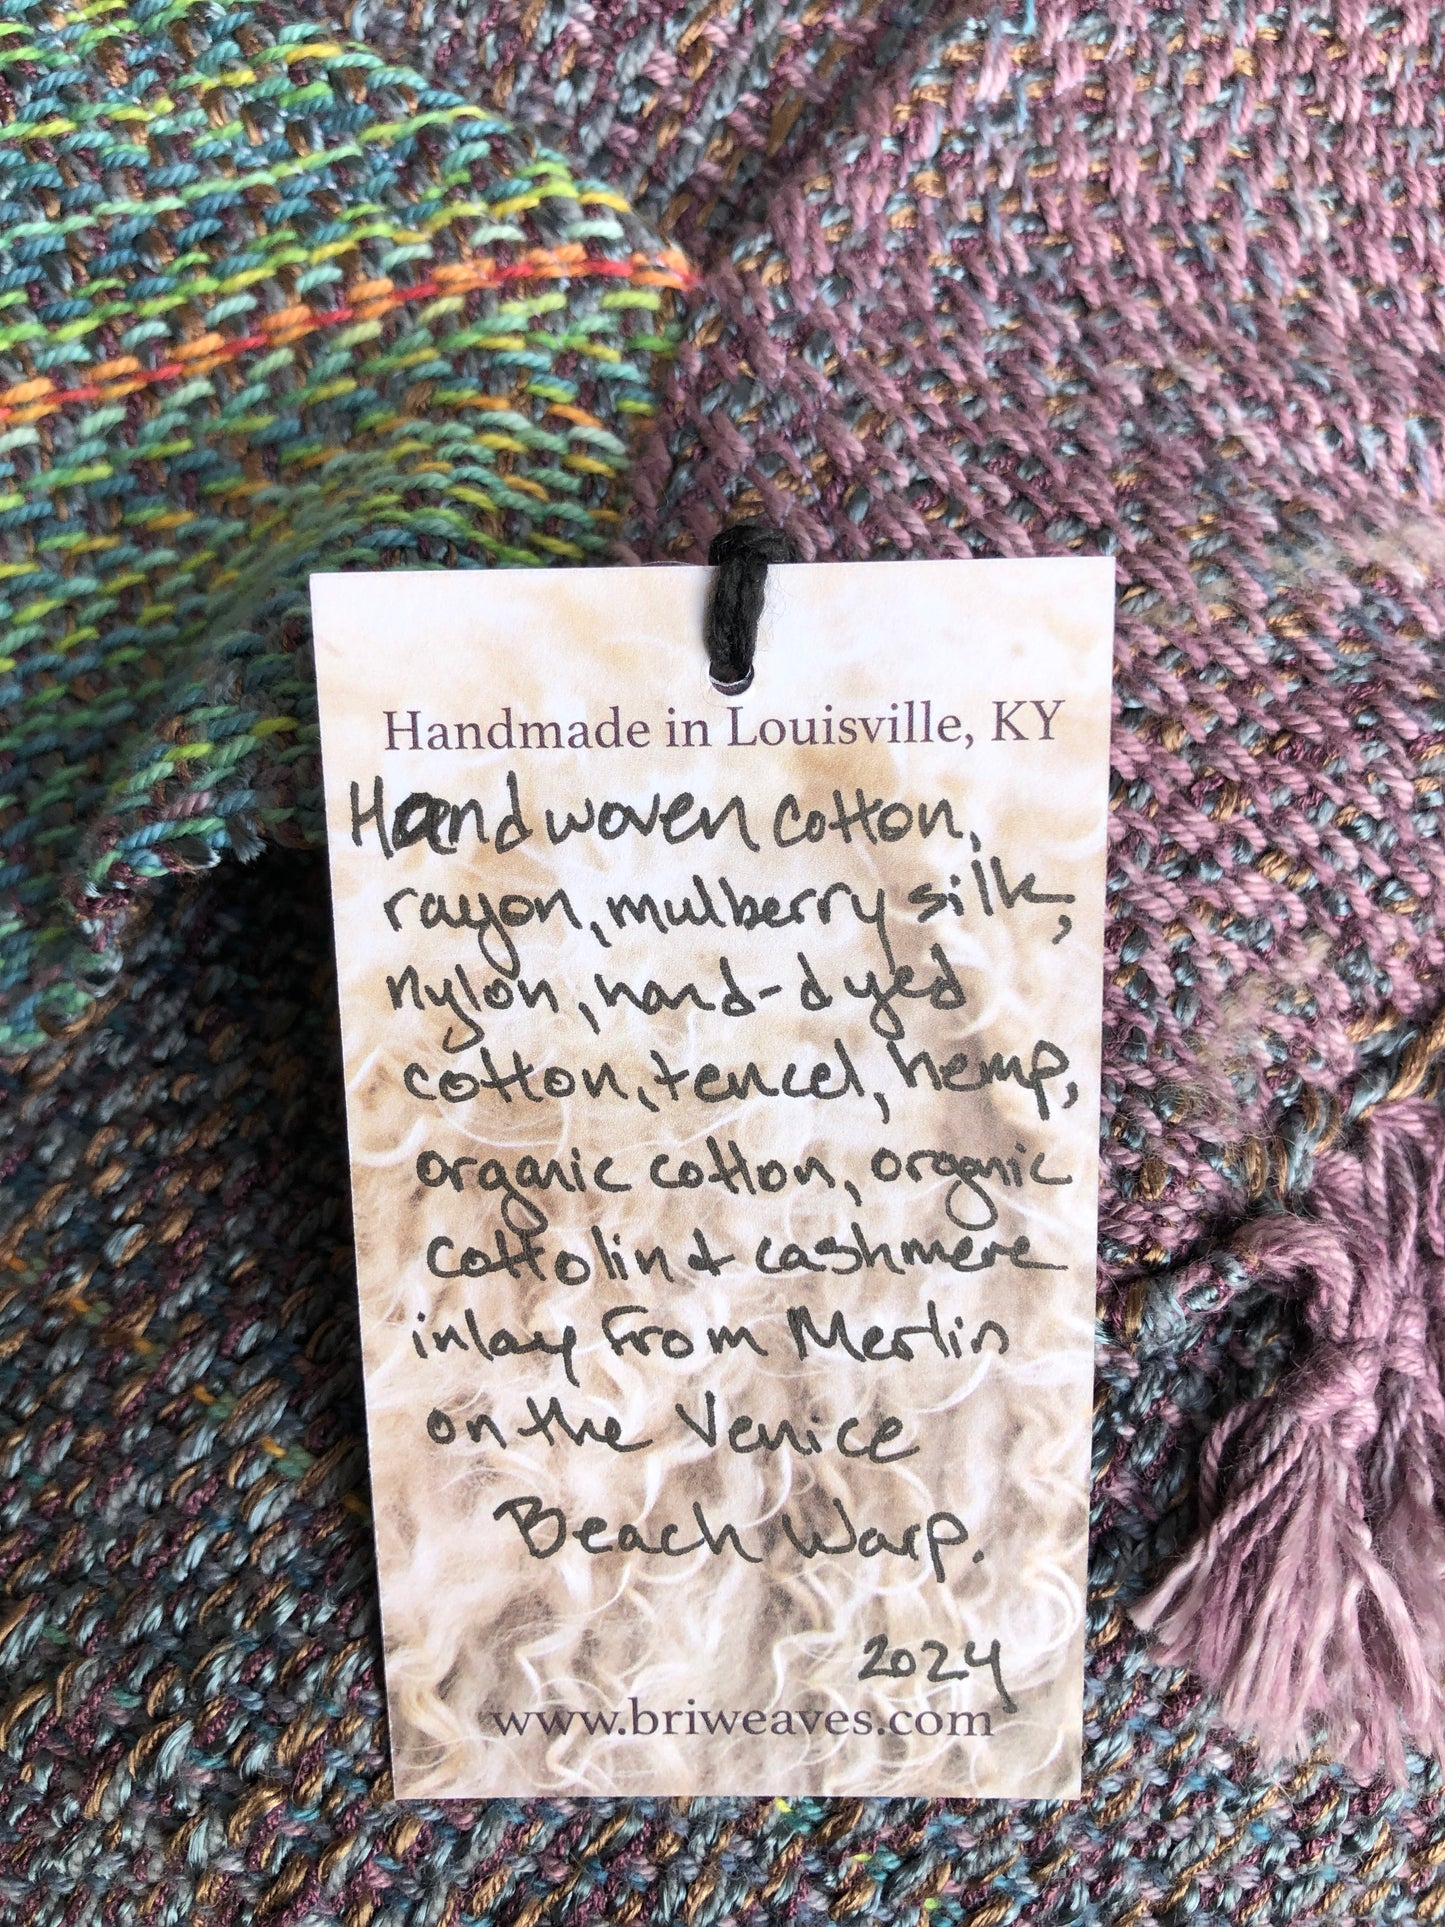 Handmade in Louisville, KY
Handwoven cotton,
rayon, mulberry silk,
nylon, hand-dyed
cotton, tencel, hemp,
organic cotton, organic
cottolin & cashmere
inlay from Merlin
on the Venice
Beach Warp.
2024
www.briweaves.com